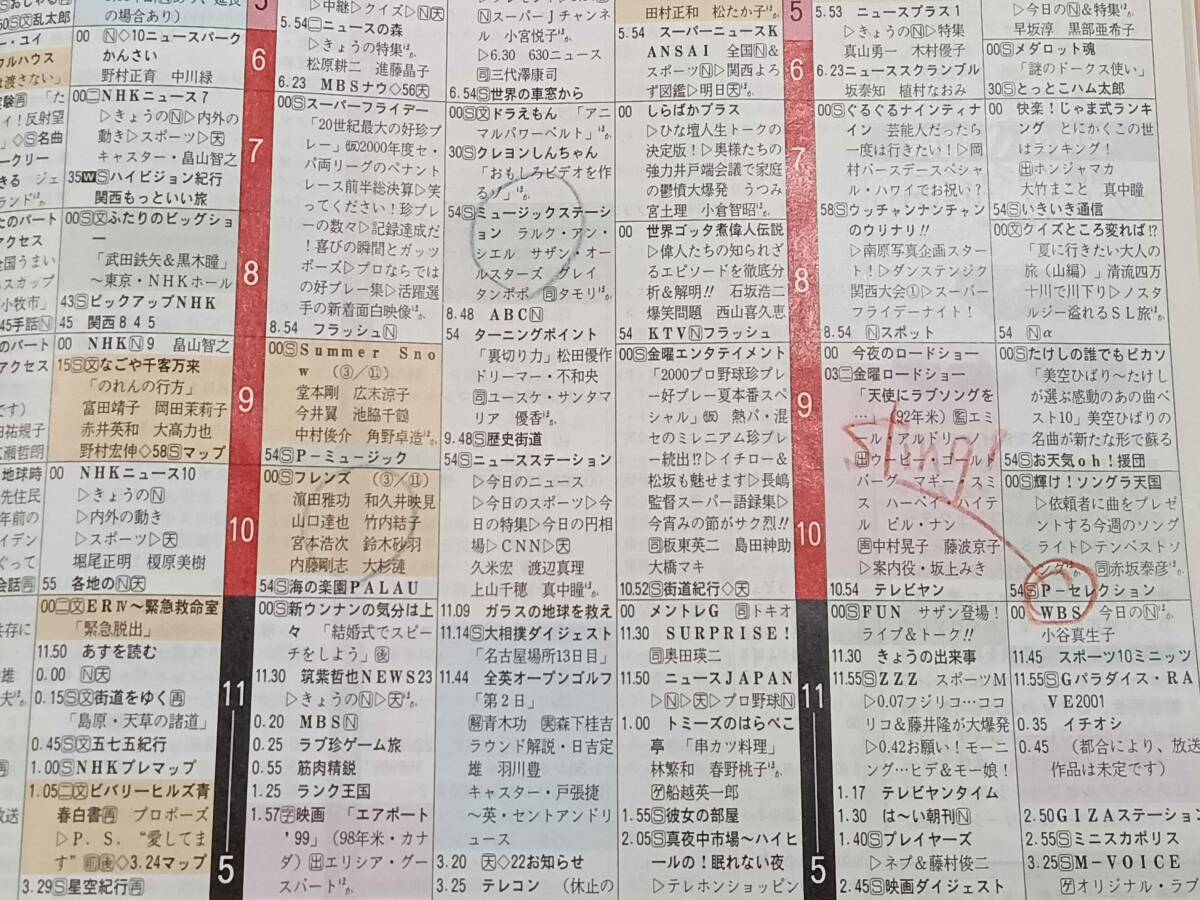 50Ⓢ㊛乱太郎
の場合あり)
00 Ⓝ◇10ニュースパーク
かんさい
野村正育 中川緑
00㊁NHKニュース7
▷きょうのⓃ▷内外の
動き▷スポーツ▷天
キャスター・畠山智之
35WⓈハイビジョン紀行
関西もっといい旅
00Ⓢ文ふたりのビッグショ
ー
「武田鉄矢&黒木瞳」
～東京・NHKホール
43ⓈピックアップNHK
45 関西845
00 NHKⓃ9 畠山智之
15Ⓢ文なごや千客万来
「のれんの行方」
富田靖子 岡田茉莉子
赤井英和 大高力也
野村宏伸◇58Ⓢマップ
00 NHKニュース10
▷きょうのⓃ
▷内外の動き
▷スポーツ▷天
堀尾正明 榎原美樹
55 各地のⓃ天
00二文ERⅣ～緊急救命室
「緊急脱出」
11.50 あすを読む
0.00 Ⓝ天
0.15Ⓢ文街道をゆく再
「島原・天草の諸道」
0.45Ⓢ文五七五紀行
1.00ⓈNHKプレマップ
1.05二文ビバリーヒルズ青
春白書再 プロポーズ
▷P.S.“愛してま
す” ◇3.24マップ
3.29Ⓢ星空紀行再
6
7
8
9
10
11
5
▷中継▷クイズ▷Ⓝ天
5.54二ニュースの森
▷きょうの特集ほか
松原耕二 進藤晶子
6.23 MBSナウ◇56天
00Ⓢスーパーフライデー
「20世紀最大の好珍プ
レー」仮2000年度セ・
パ両リーグのペナント
レース前半総決算▷笑
ってください!珍プレ
ーの数々▷記録達成だ
!喜びの瞬間とガッツ
ポーズ▷プロならでは
の好プレー集▷活躍選
手の新着面白映像ほか
8.54 フラッシュⓃ
00ⓈSummer Sno
w (③/⑪)
堂本剛 広末涼子
今井翼 池脇千鶴
中村俊介 角野卓造ほか
54ⓈP-ミュージック
00Ⓢフレンズ (③/⑪)
濱田雅功 和久井映見
山口達也 竹内結子
宮本浩次 鈴木砂羽
内藤剛志 大杉漣
54Ⓢ海の楽園PALAU
00Ⓢ新ウンナンの気分は上
々 「結婚式でスピー
チをしよう」後
11.30 筑紫哲也NEWS23
▷きょうのⓃ▷天ほか
0.20 MBSⓃ
0.25 ラブ珍ゲーム旅
0.55 筋肉精鋭
1.25 ランク王国
1.57字映画「エアポート
’99」(98年米・カナ
ダ)出エリシア・グー
スバートほか
ⓃスーパーJチャンネ
ル 小宮悦子ほか
▷6.30 630ニュース
司三代澤康司
6.54Ⓢ世界の車窓から
00Ⓢ文ドラえもん 「アニ
マルパワーベルト」ほか
30Ⓢクレヨンしんちゃん
「おもしろビデオを作
るゾ」ほか
54Ⓢミュージックステーシ
ョン ラルク・アン・
シエル サザン・オー
ルスターズ グレイ
タンポポ 司タモリほか
8.48 ABCⓃ
54 ターニングポイント
「裏切り力」松田優作
ドリーマー・不和央
司ユースケ・サンタマ
リア 優香ほか
9.48Ⓢ歴史街道
54Ⓢニュースステーション
▷今日のニュース
▷今日のスポーツ▷今
日の特集▷今日の円相
場▷CNN▷天
久米宏 渡辺真理
上山千穂 真中瞳ほか
11.09 ガラスの地球を救え
11.14Ⓢ大相撲ダイジェスト
「名古屋場所13日目」
11.44 全英オープンゴルフ
「第2日」
解青木功 実森下桂吉
ラウンド解説・日吉定
雄 羽川豊
キャスター・戸張捷
～英・セントアンドリ
ュース
3.20 天◇22お知らせ
3.25 テレコン (休止の
田村正和 松たか子ほか
5.54 スーパーニュースK
ANSAI 全国Ⓝ&
スポーツⓃ▷関西よろ
ず図鑑▷明日天ほか
00 しらばかプラス
▷ひな壇人生トークの
決定版!▷奥様たちの
強力井戸端会議で家庭
の鬱憤大爆発 うつみ
宮土理 小倉智昭ほか
00 世界ゴッタ煮偉人伝説
▷偉人たちの知られざ
るエピソードを徹底分
析&解明!! 石坂浩二
爆笑問題 西山喜久恵
54 KTVⓃフラッシュ
00Ⓢ金曜エンタテイメント
「2000プロ野球珍プレ
ー好プレー夏本番スペ
シャル」仮 熱パ・混
セのミレニアム珍プレ
ー続出!?▷イチロー&
松坂も魅せます▷長嶋
監督スーパー語録集▷
今宵みの節がサク烈!!
司板東英二 島田紳助
大橋マキ
10.52Ⓢ街道紀行◇天
00 メントレG 司トキオ
11.30 SURPRISE!
司奥田瑛二
11.50 ニュースJAPAN
▷Ⓝ▷天▷プロ野球Ⓝ
1.00 トミーズのはらぺこ
亭 「串カツ料理」
林繁和 春野桃子ほか
ゲ船越英一郎
1.55Ⓢ彼女の部屋
2.05Ⓢ真夜中市場～ハイヒ
ールの!眠れない夜
▷テレホンショッピン
5
6
7
8
9
10
11
5
5.53 ニュースプラス1
▷きょうのⓃ▷特集
真山勇一 木村優子
6.23 ニューススクランブル
坂泰知 植村なおみ
00Ⓢぐるぐるナインティナ
イン 芸能人だったら
一度は行きたい!▷岡
村バースデースペシャ
ル・ハワイでお祝い?
58Ⓢウッチャンナンチャン
のウリナリ!!
▷南原写真企画スター
ト!▷ダンステンジク
関西大会①▷スーパー
フライデーナイト!
8.54 Ⓝスポット
00 今夜のロードショー
03二金曜ロードショー
「天使にラブソングを
…」(92年米)監エミ
ール・アルドリーノ
出ウーピー・ゴールド
バーグ マギー・スミ
ス ハーベイ・カイテ
ル ビル・ナン
声中村晃子 藤波京子
▷案内役・坂上みき
10.54 テレビヤン
00ⓈFUN サザン登場!
ライブ&トーク!!
11.30 きょうの出来事
11.55ⓈZZZ スポーツM
▷0.07フジリコ…ココ
リコ&藤井隆が大爆発
▷0.42お願い!モーニ
ング…ヒデ&モー娘!
1.17 テレビヤンタイム
1.30 は～い朝刊Ⓝ
1.40Ⓢプレイヤーズ
▷ネプ&藤村俊二
2.45Ⓢ映画ダイジェスト
▷今日のⓃ&特集ほか
早坂淳 黒部亜希子
00Ⓢメダロット魂
「謎のドークス使い」
30Ⓢとっとこハム太郎
00 快楽!じゃま式ランキ
ング とにかくこの世
はランキング!
出ホンジャマカ
大竹まこと 真中瞳
54Ⓢいきいき通信
00文クイズところ変れば!?
「夏に行きたい大人の
旅(山編)」清流四万
十川で川下り▷ノスタ
ルジー溢れるSL旅ほか
54 Ⓝα
00Ⓢたけしの誰でもピカソ
「美空ひばり～たけし
が選ぶ感動のあの曲ベ
スト10」美空ひばりの
名曲が新たな形で蘇る
54Ⓢお天気oh!援団
00Ⓢ輝け!ソングラ天国
▷依頼者に曲をプレゼ
ントする今週のソング
ライト▷テンペストソ
ングほか 司赤坂泰彦ほか
54ⓈP-セレクション
00 WBS 今日のⓃほか
小谷真生子
11.45 スポーツ10ミニッツ
11.55ⓈGパラダイス・RA
VE2001
0.35 イチオシ
0.45 (都合により、放送
作品は未定です)
2.50GIZAステーション
2.55Ⓢミニスカポリス
3.25ⓈM-VOICE
ゲオリジナル・ラブ
Sting